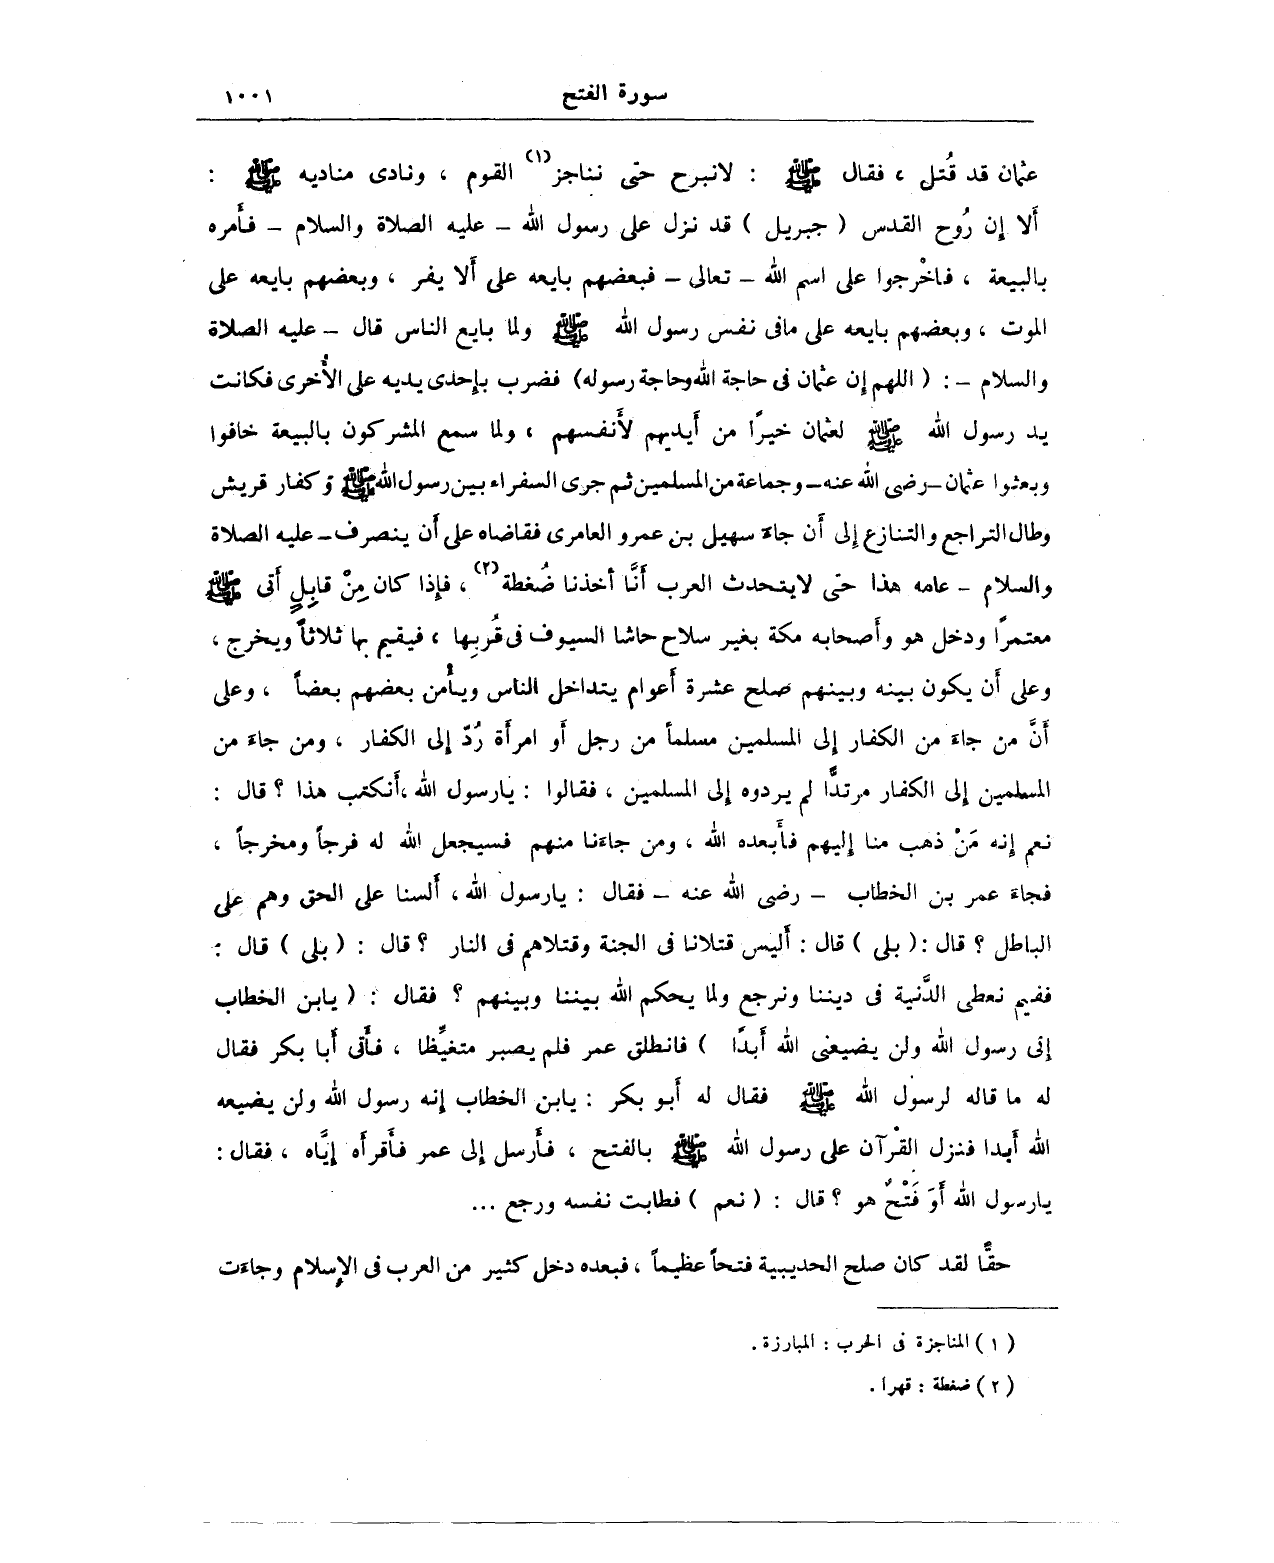 سورة الفتح ١٠٠١
عثمان قد قُتل ، فقال ﷺ : لانبرح حتى نناجز(١) القوم ، ونادى مناديه ﷺ :
أَلا إن رُوح القدس ( جبريل ) قد نزل على رسول الله – عليه الصلاة والسلام – فأَمره
بالبيعة ، فاخْرجوا على اسم الله – تعالى – فبعضهم بايعه على أَلا يفر ، وبعضهم بايعه على
الموت ، وبعضهم بايعه على مافى نفس رسول الله ﷺ ولما بايع الناس قال – عليه الصلاة
والسلام – : ( اللهم إن عثمان فى حاجة الله وحاجة رسوله) فضرب بإحدى يديه على الأُخرى فكانت
يد رسول الله ﷺ لعثمان خيرًا من أَيديهم لأَنفسهم ، ولما سمع المشركون بالبيعة خافوا
وبعثوا عثمان – رضى الله عنه – وجماعة من المسلمين ثم جرى السفراء بين رسول الله ﷺ وكفار قريش
وطال التراجع والتنازع إلى أَن جاءَ سهيل بن عمرو العامرى فقاضاه على أَن ينصرف – عليه الصلاة
والسلام – عامه هذا حتى لايتحدث العرب أَنَّا أخذنا ضُغطة(٢) ، فإذا كان مِنْ قابِلٍ أَتى ﷺ
معتمرًا ودخل هو وأَصحابه مكة بغير سلاح حاشا السيوف فى قُرُبِها ، فيقيم بها ثلاثاً ويخرج ،
وعلى أَن يكون بينه وبينهم صلح عشرة أَعوام يتداخل الناس ويأْمن بعضهم بعضاً ، وعلى
أَنَّ من جاءَ من الكفار إلى المسلمين مسلماً من رجل أَو امرأَة رُدّ إلى الكفار ، ومن جاءَ من
المسلمين إلى الكفار مرتدًّا لم يردوه إلى المسلمين ، فقالوا : يارسول الله ،أَنكتب هذا ؟ قال :
نعم إنه مَنْ ذهب منا إليهم فأَبعده الله ، ومن جاءَنا منهم فسيجعل الله له فرجاً ومخرجاً ،
فجاءَ عمر بن الخطاب – رضى الله عنه – فقال : يارسول الله ، أَلسنا على الحق وهم على
الباطل ؟ قال : ( بلى ) قال : أَليس قتلانا فى الجنة وقتلاهم فى النار ؟ قال : ( بلى ) قال :
ففيم نعطى الدَّنية فى ديننا ونرجع ولما يحكم الله بيننا وبينهم ؟ فقال : ( يابن الخطاب
إنى رسول الله ولن يضيعنى الله أَبدًا ) فانطلق عمر فلم يصبر متغيِّظا ، فأَتى أَبا بكر فقال
له ما قاله لرسول الله ﷺ فقال له أَبو بكر : يابن الخطاب إنه رسول الله ولن يضيعه
الله أَبدا فنزل القرْآن على رسول الله ﷺ بالفتح ، فأَرسل إلى عمر فأَقرأَه إيَّاه ، فقال :
يارسول الله أَوَ فَتْحٌ هو ؟ قال : ( نعم ) فطابت نفسه ورجع ...
حقًّا لقد كان صلح الحديبية فتحاً عظيماً ، فبعده دخل كثير من العرب فى الإسلام وجاءَت
( ١ ) المناجزة فى الحرب : المبارزة .
( ٢ ) ضغطة : قهرا .